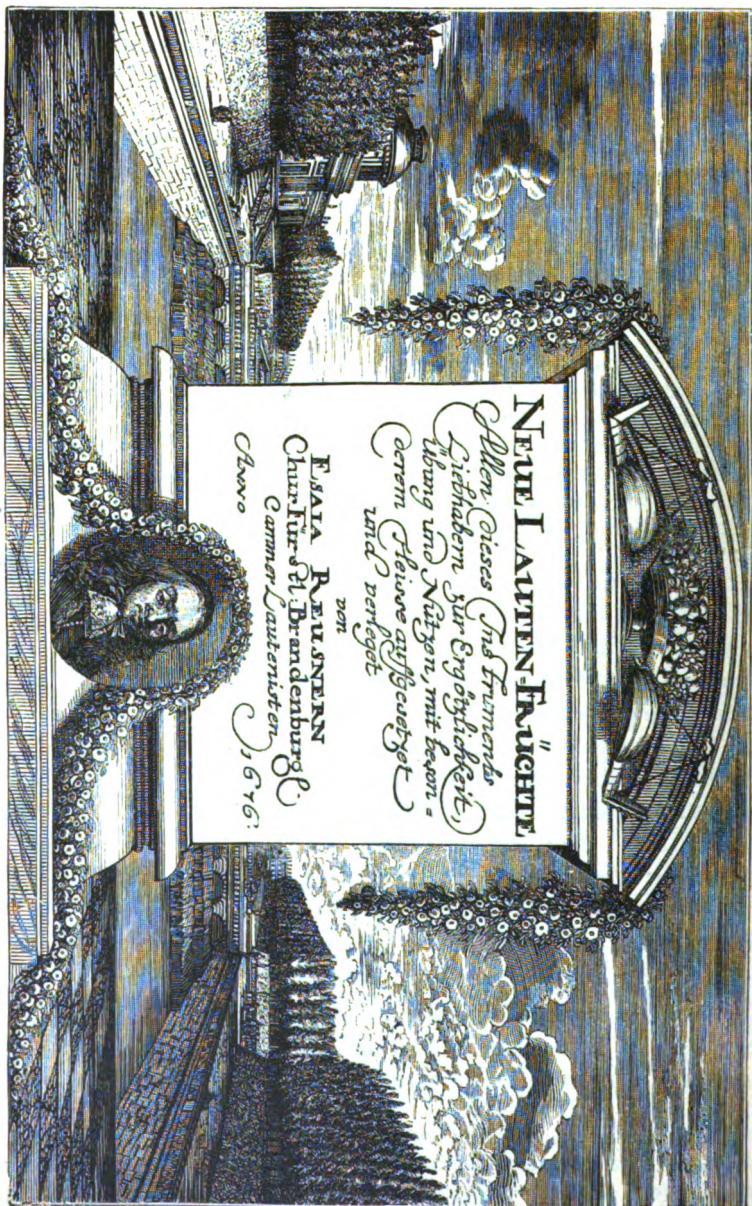 NEUE LAUTEN-FRÜCHTE
Allen dieses Instruments
Liebhabern zur Ergötzlichkeit,
Übung und Nützen, mit beson=
derem Fleisse auffgesetzet
und verleget
von
ESAIA REUSNERN
ChurFürstl. Brandenburg.
Cammer Lautenisten
Anno 1676.